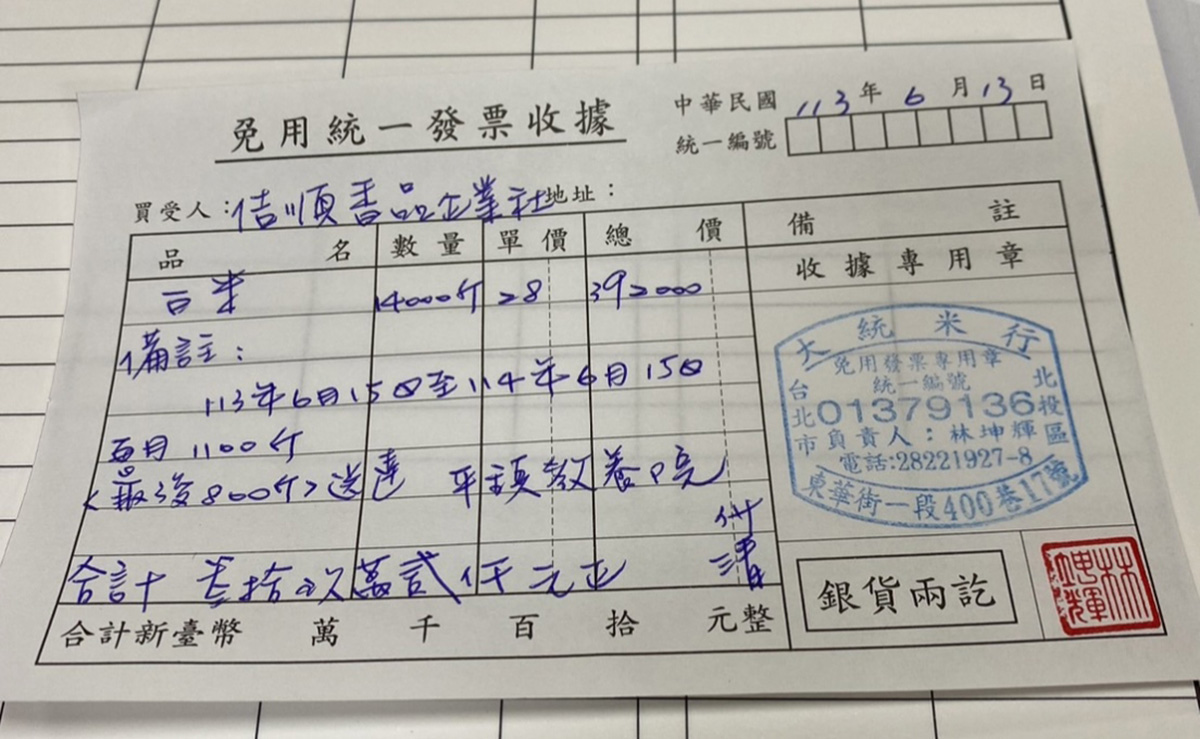 免用統一發票收據
中華民國 113 年 6 月 13 日
統一編號
買受人：佶順香品企業社 地址：
品名 數量 單價 總價 備註
收據專用章
白米 14000斤 28 392000
備註：
113年6月15日至114年6月15日
每月1100斤
<最後800斤>送達 平頭教養院
付清
合計 叁拾玖萬貳仟元正
合計新臺幣 萬 千 百 拾 元整
大統米行
免用發票專用章
統一編號
01379136
負責人：林坤輝
電話:28221927-8
台北市北投區
東華街一段400巷17號
銀貨兩訖
林坤輝